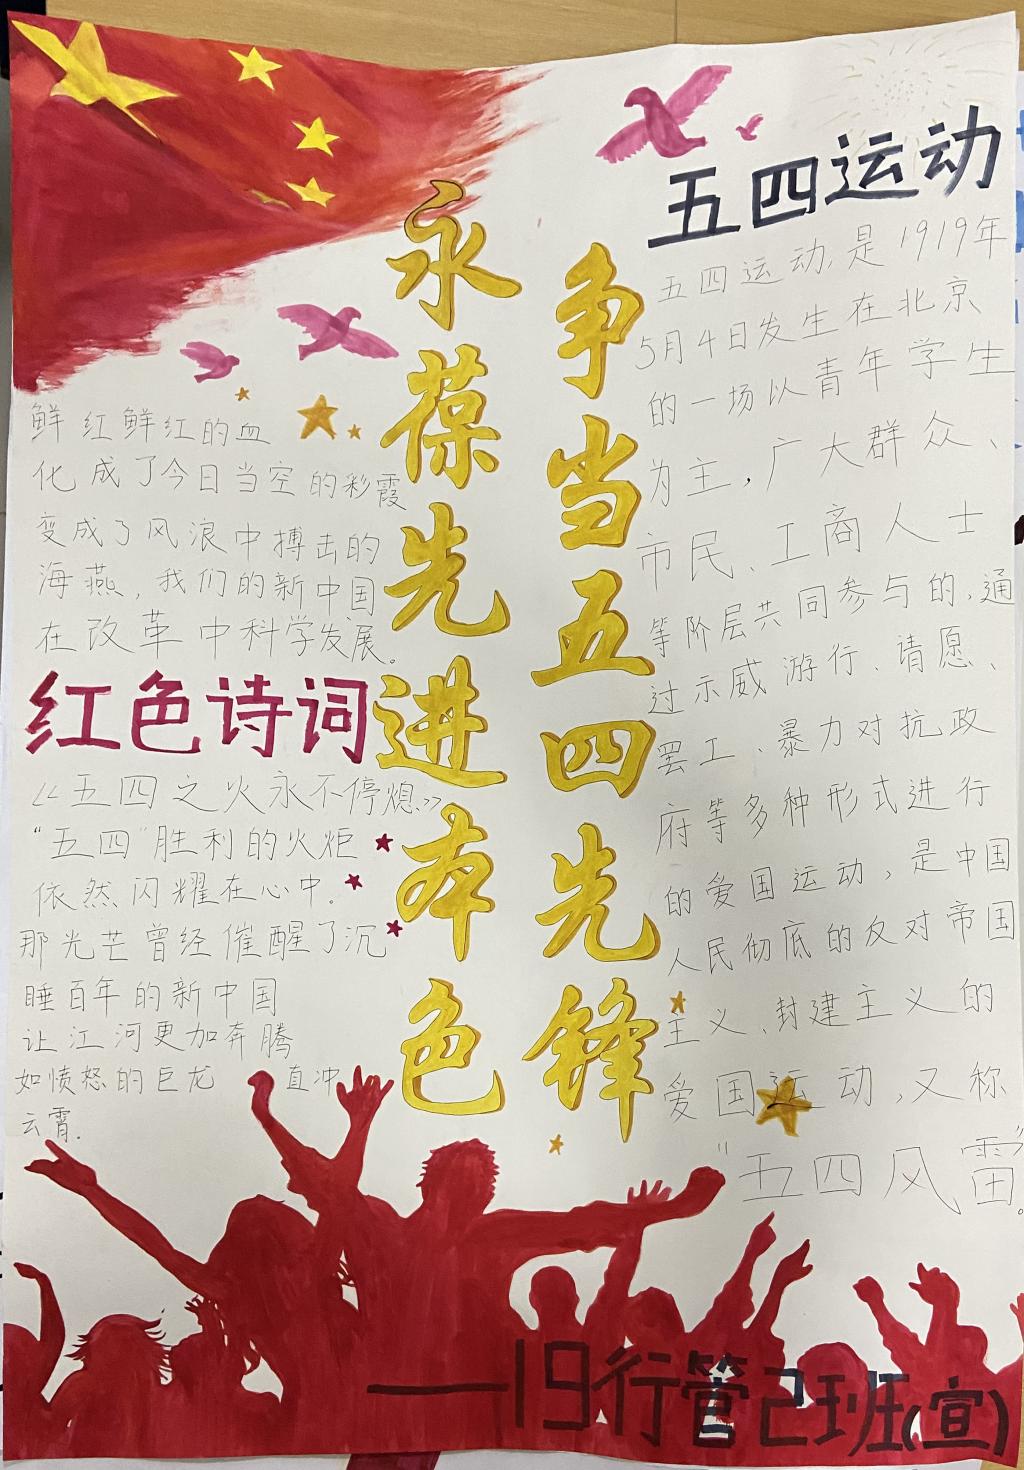 永葆先进本色
争当五四先锋
五四运动
五四运动,是1919年
5月4日发生在北京
的一场以青年学生
为主,广大群众、
市民、工商人士
等阶层共同参与的,通
过示威游行、请愿、
罢工、暴力对抗政
府等多种形式进行
的爱国运动,是中国
人民彻底的反对帝国
主义、封建主义的
爱国运动,又称
"五四风雷"。
鲜红鲜红的血
化成了今日当空的彩霞
变成了风浪中搏击的
海燕,我们的新中国
在改革中科学发展。
红色诗词
《五四之火永不停熄》
"五四"胜利的火炬
依然闪耀在心中.
那光芒曾经催醒了沉
睡百年的新中国
让江河更加奔腾
如愤怒的巨龙 直冲
云霄.
——19行管2班(宣)